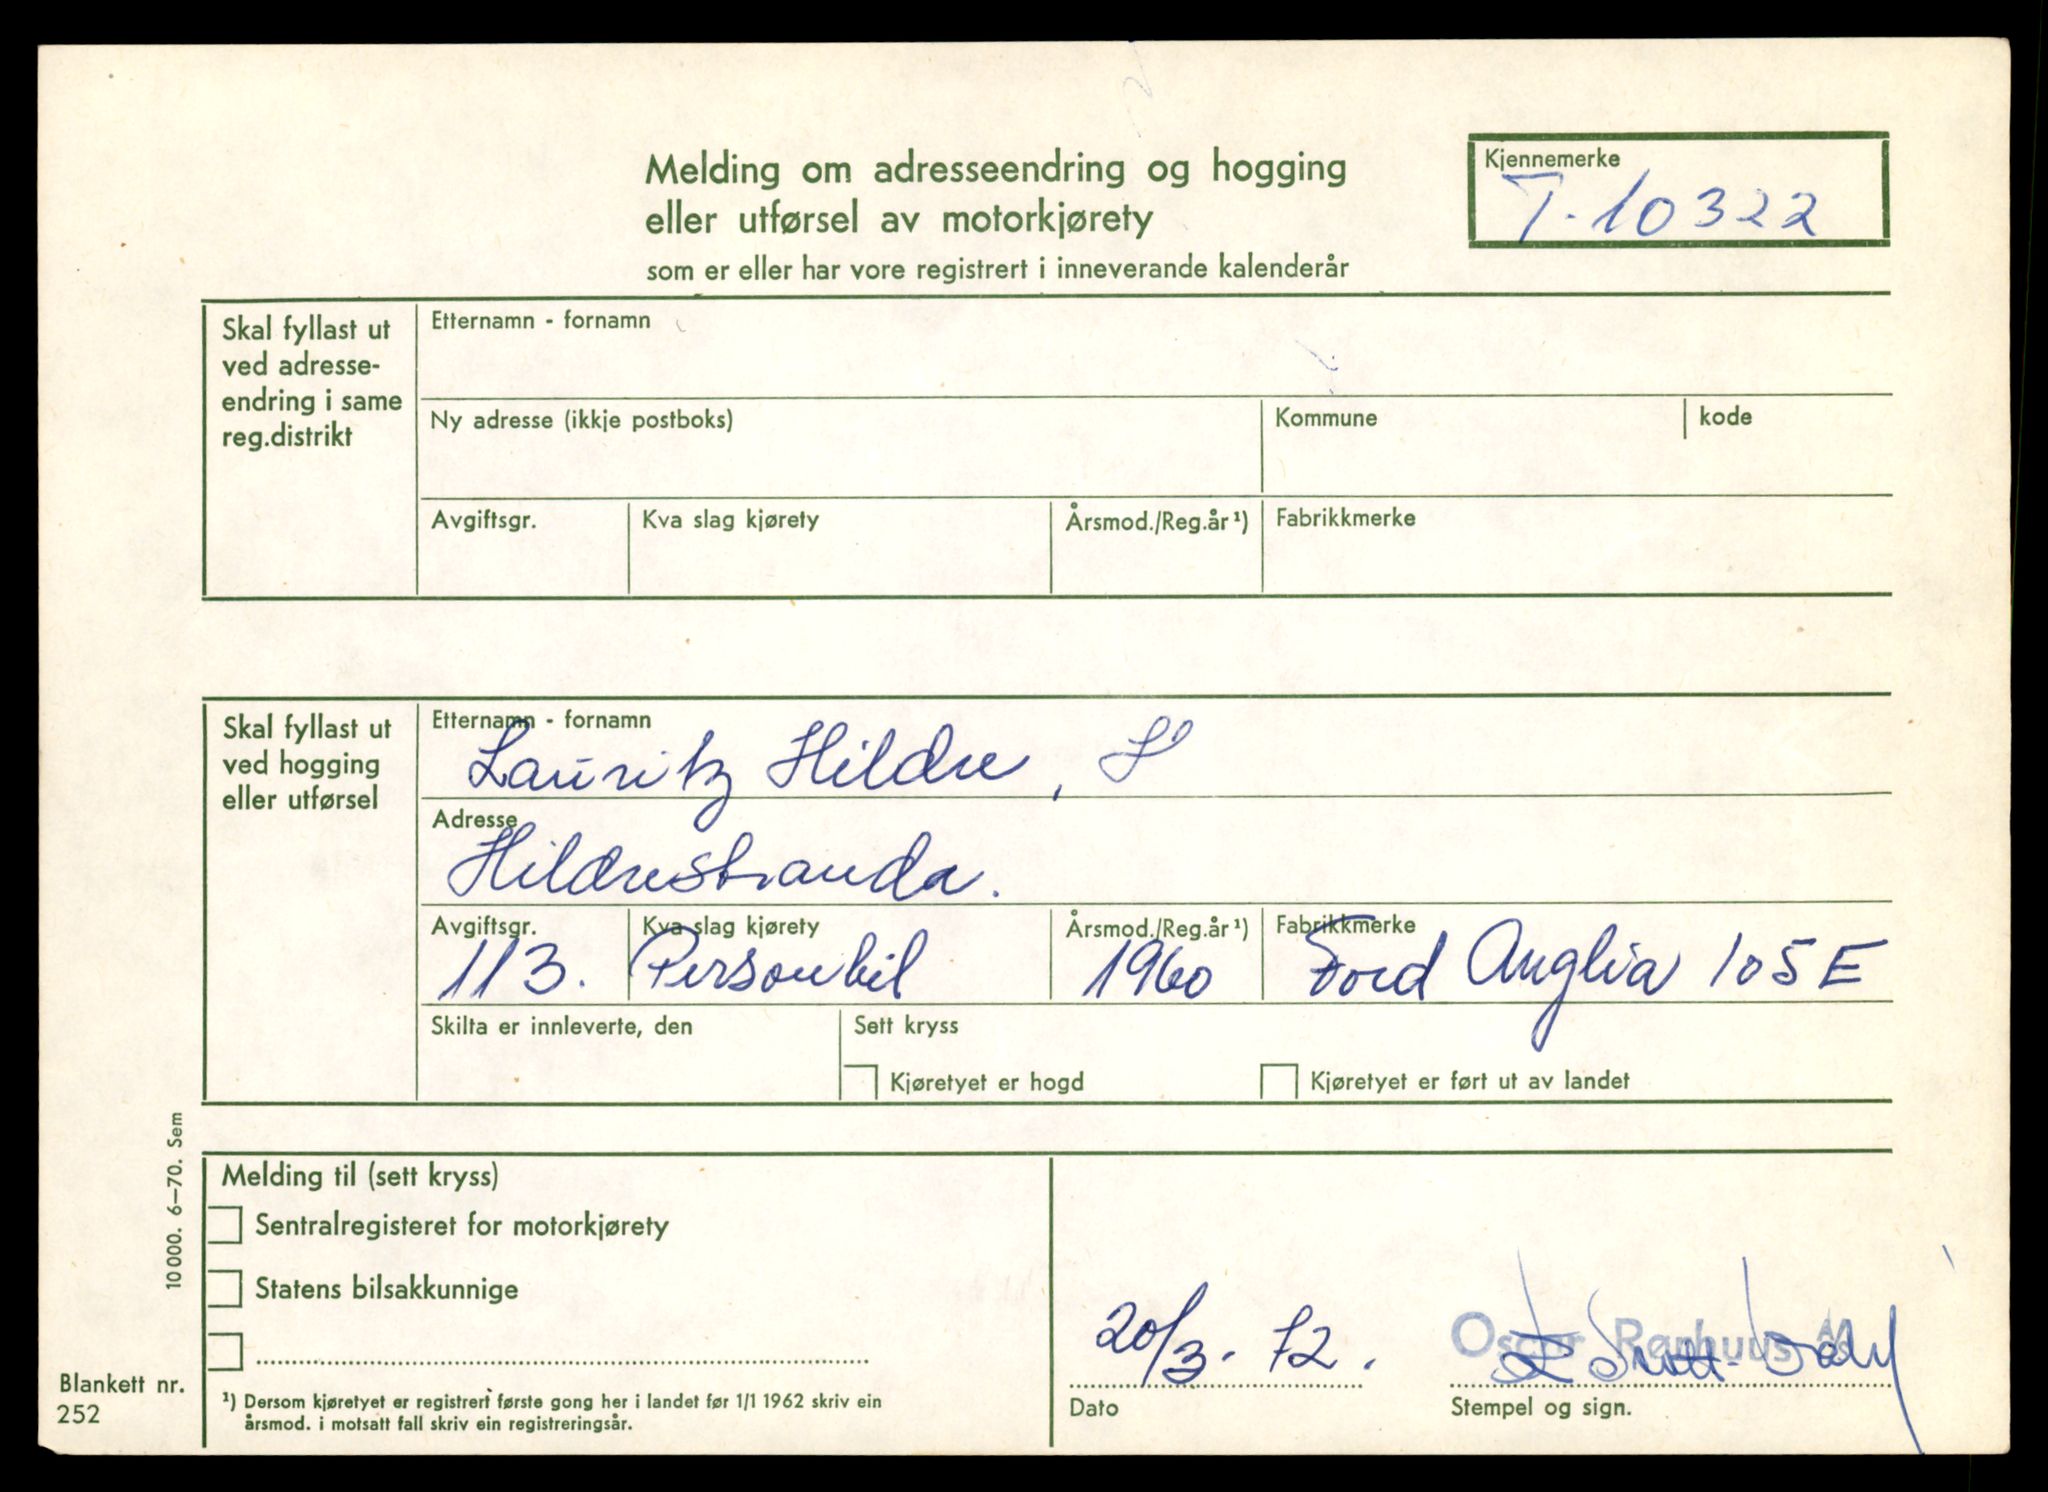 Melding om adresseendring og hogging
eller utførsel av motorkjørety
som er eller har vore registrert i inneverande kalenderår
Kjennemerke
T-10322
Skal fyllast ut
ved adresse-
endring i same
reg.distrikt
Etternamn - fornamn
Ny adresse (ikkje postboks)
Kommune
kode
Avgiftsgr.
Kva slag kjørety
Årsmod./Reg.år ¹)
Fabrikkmerke
Skal fyllast ut
ved hogging
eller utførsel
Etternamn - fornamn
Lauritz Hildre,
Adresse
Hildrestranda.
Avgiftsgr.
113.
Kva slag kjørety
Personbil
Årsmod./Reg.år ¹)
1960
Fabrikkmerke
Ford Anglia 105E
Skilta er innleverte, den
Sett kryss
Kjøretyet er hogd
Kjøretyet er ført ut av landet
Melding til (sett kryss)
Sentralregisteret for motorkjørety
Statens bilsakkunnige
¹) Dersom kjøretyet er registrert første gong her i landet før 1/1 1962 skriv ein
årsmod. i motsatt fall skriv ein registreringsår.
20/3. 72.
Dato
Oscar Rørhuus
Stempel og sign.
10000. 6-70. Sem
Blankett nr.
252